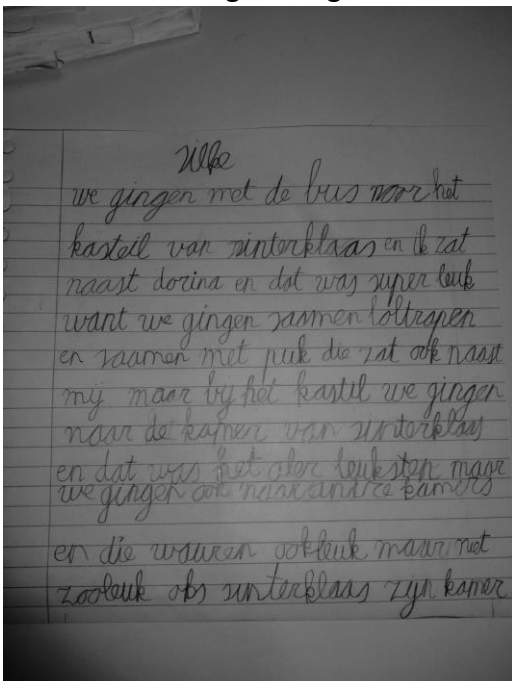 Silke
we gingen met de bus naar het
kasteil van sinterklaas en ik zat
naast dorina en dat was super leuk
want we gingen saamen loltrapen
en saamen met puk die zat ook naast
mij maar bij het kastil we gingen
naar de kamer van sinterklaas
en dat was het aler leuksten maar
we gingen ook naar andre kamers
en die wauren ookleuk maar niet
zooleuk als sinterklaas zijn kamer